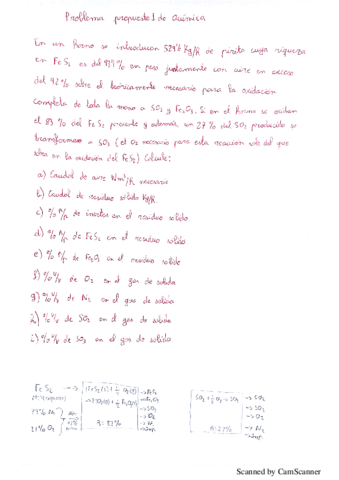 Problema propuesto 1 de Química
En un horno se introducen 5294 Kg/h de pirita cuya riqueza
en FeS₂ es del 91'9% en peso juntamente con aire en exceso
del 42% sobre el teóricamente necesario para la oxidación
completa de toda la mena a SO₂ y Fe₂O₃. Si en el horno se oxidan
el 83% del FeS₂ presente y además un 27% del SO₂ producido se
transforma a SO₃ (el O₂ necesario para esta reacción sale del que
sobra en la oxidación del FeS₂) Calcule:
a) Caudal de aire Nm³/h necesario
b) Caudal de residuo sólido Kg/h
c) % P/P de inertes en el residuo sólido
d) % P/P de FeS₂ en el residuo sólido
e) % P/P de Fe₂O₃ en el residuo sólido
f) % V/V de O₂ en el gas de salida
g) % V/V de N₂ en el gas de salida
h) % V/V de SO₂ en el gas de salida
i) % V/V de SO₃ en el gas de salida
FeS₂
79% N₂
21% O₂
Aire
R: 83%
SO₂ + ½ O₂ → SO₃
R: 27%
→ SO₂
→ O₂
→ N₂
Scanned by CamScanner